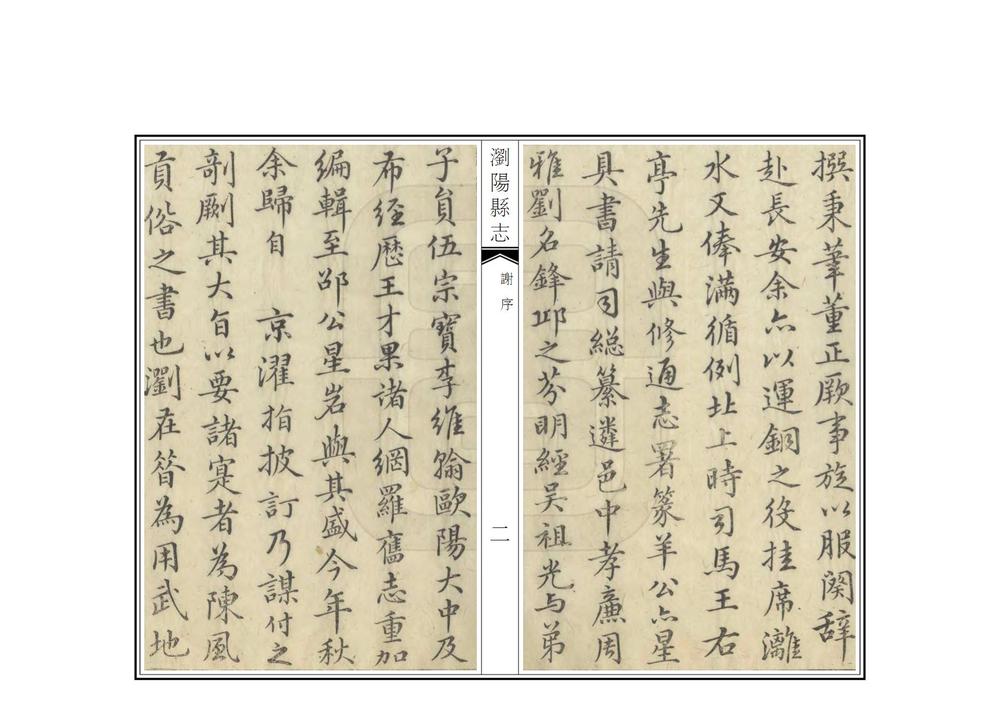 撰秉筆董正厥事旋以服闋辭
赴長安余亦以運銅之役挂席灕
水又俸滿循例北上時司馬王右
亭先生與修通志署篆羊公亦星
具書請司総纂遴邑中孝廉周
雅劉名鋒邱之芬明經吴祖光与弟
瀏陽縣志
謝序
二
子貟伍宗寶李維翰歐陽大中及
布經歷王才果諸人網羅舊志重加
編輯至邵公星岩與其盛今年秋
余歸自 京濯指披訂乃謀付之
剞劂其大旨以要諸寔者為陳風
貢俗之書也瀏在昝為用武地